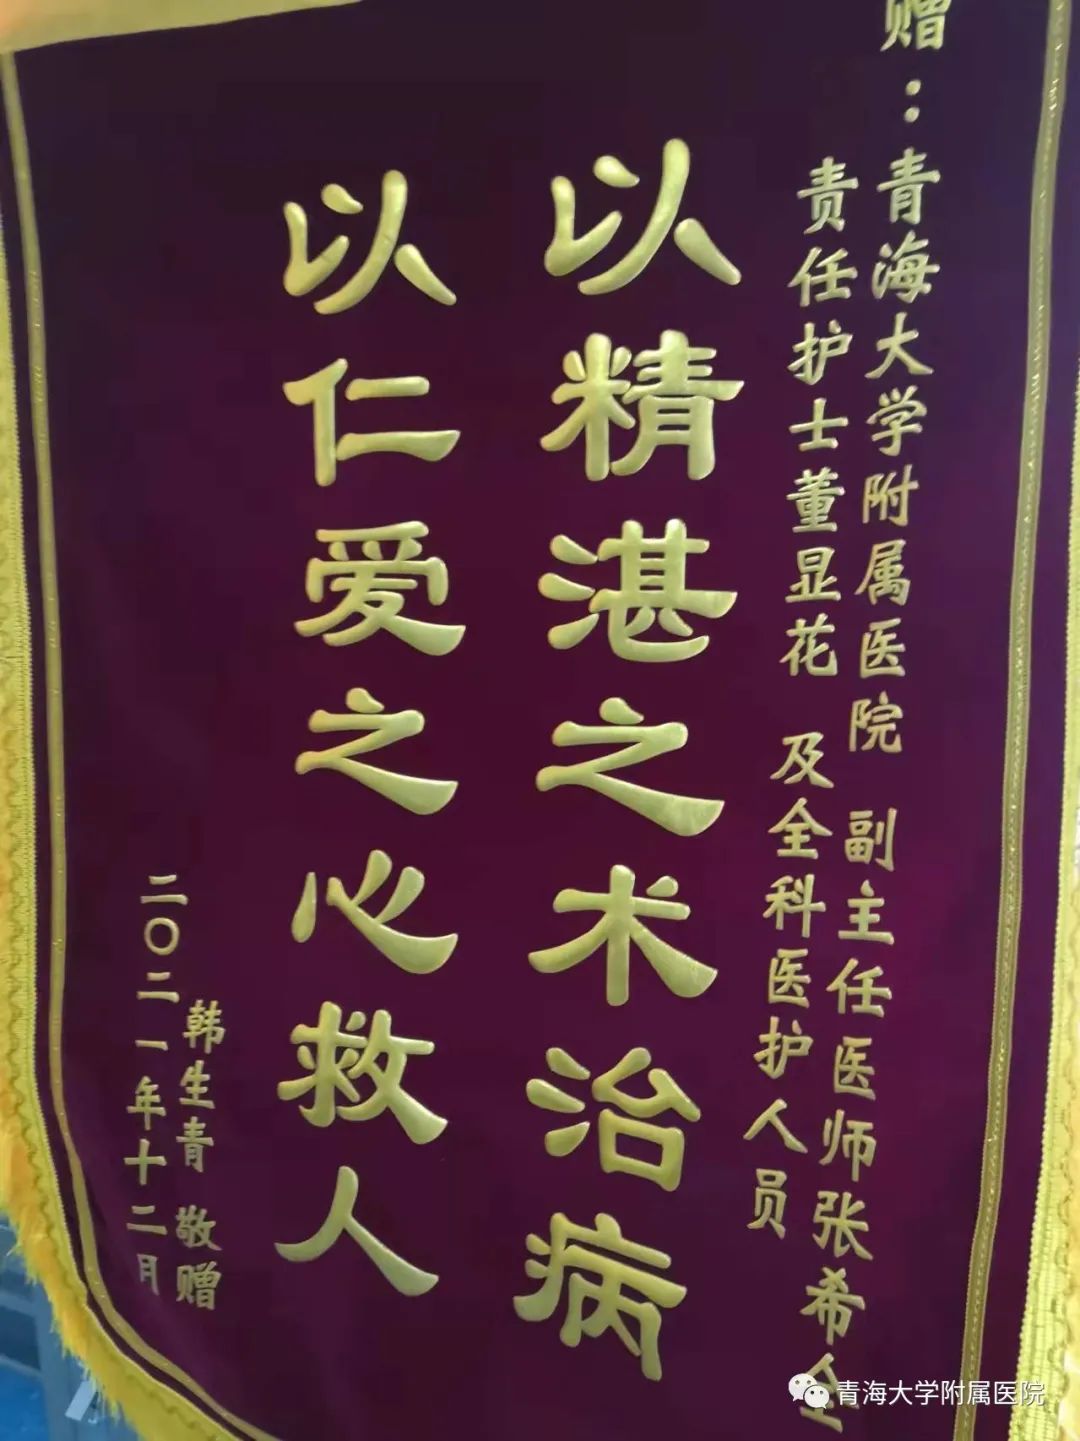 赠：青海大学附属医院 副主任医师张希全
责任护士董显花 及全科医护人员
以精湛之术治病
以仁爱之心救人
韩生青 敬赠
二〇二一年十二月
青海大学附属医院